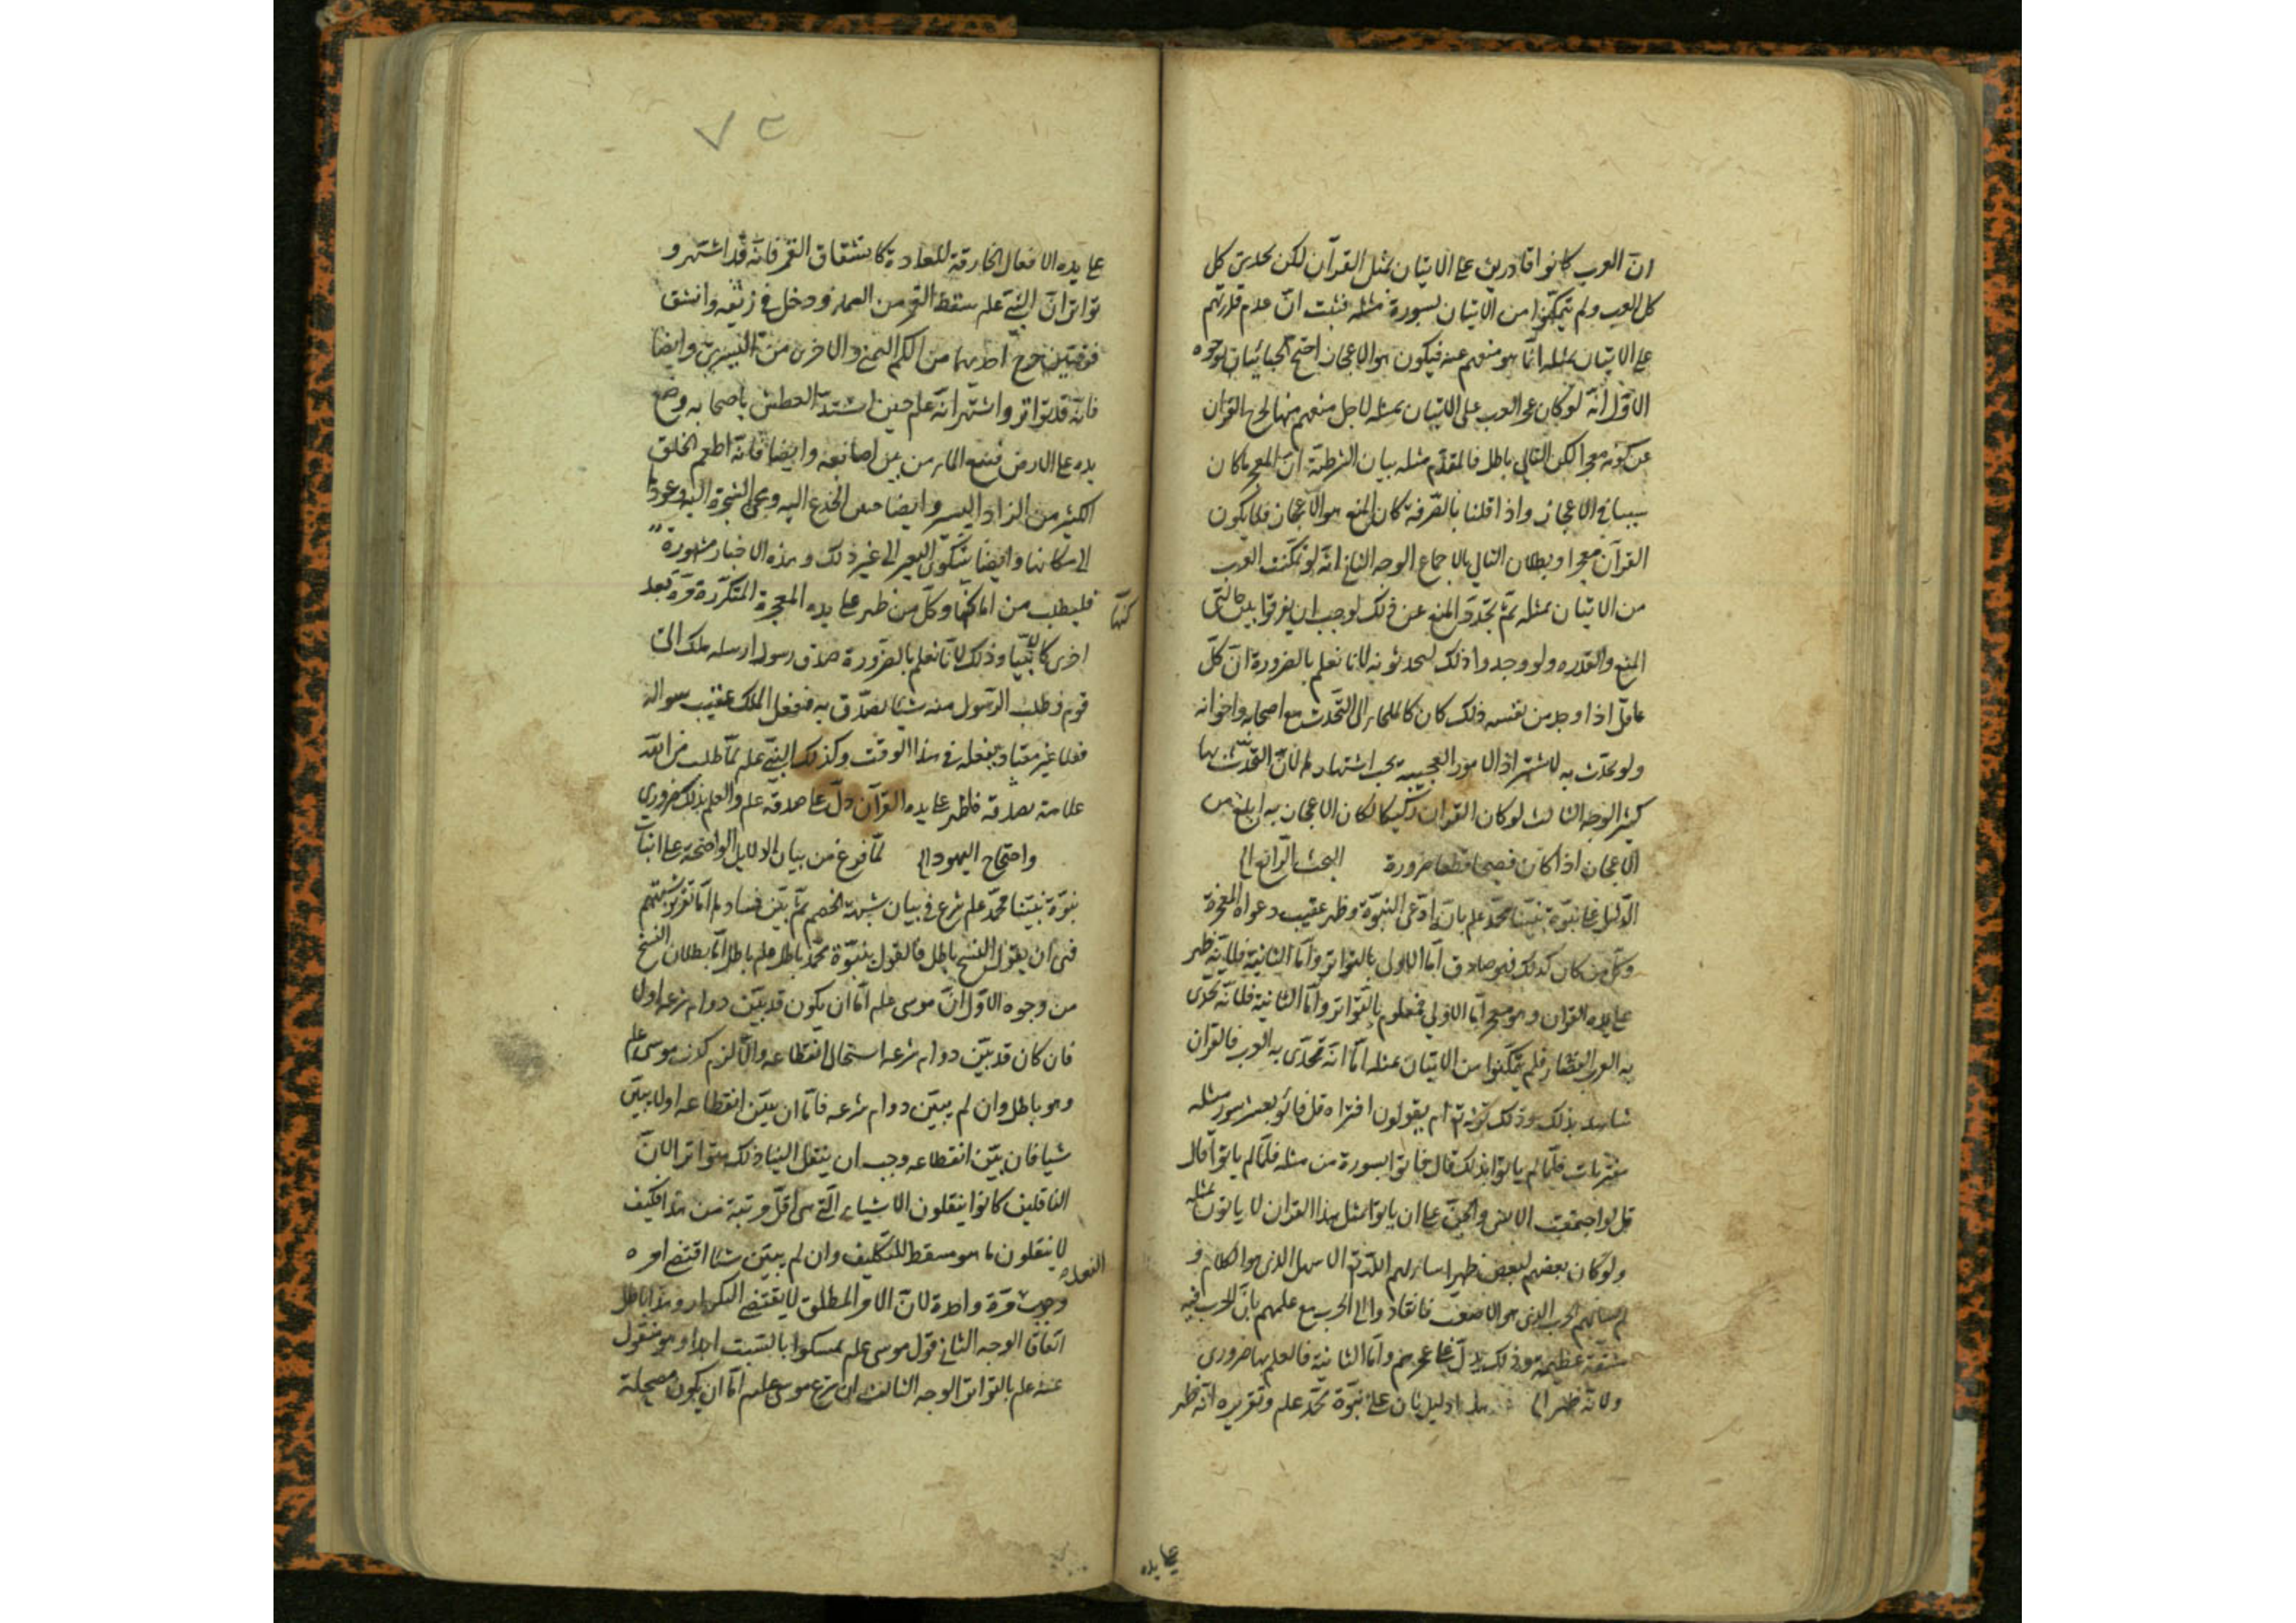 انّ العرب كانوا قادرين على الاتيان بمثل القرآن لكن تحدى كل
كل العرب ولم يتمكّنوا من الاتيان بسورة مثله فثبت انّ عدم قدرتهم
على الاتيان بمثله انّما هو منعهم عنه فيكون هو الاعجاز احتج الجبائيان بوجوه
الاوّل انّه لو كان عجز العرب على الاتيان بمثله لاجل منعهم منها لخرج القران
عن كونه معجزا لكن التالي باطل فالمقدّم مثله بيان الشرطيّة انّ المعجز ما كان
سببا في الاعجاز واذا قلنا بالصّرفة كان المنع هو الاعجاز فلا يكون
القرآن معجزا وبطلان التالي بالاجماع الوجه الثاني انّه لو تمكّنت العرب
من الاتيان بمثله ثمّ تجدّد المنع عن ذلك لوجب ان يفرقوا بين حالتي
المنع والقدره ولو وجدوا ذلك لتحدثوا به لانا نعلم بالضرورة انّ كلّ
عاقل اذا وجد من نفسه ذلك كان كالملجاء الى التّحدث مع اصحابه واخوانه
ولو تحدّث به لاشتهر اذ الامور العجيبة يجب اشتهارها لانّ التحّدث بها
كثير الوجه الثالث لو كان القران ركيكا لكان الاعجاز به ابلغ من
الاعجاز اذا كان فصيحا قطعا ضرورة البحث الرّابع الى
الدّليل على نبوّة نبيّنا محمّد علم بانّه ادّعى النبوّة وظهر عقيب دعواه المعجزة
وكلّ من كان كذلك فهو صادق امّا الاولى بالتواتر وامّا الثانية فلانّه ظهر
على يده القران وهو معجز امّا الاولى فمعلوم بالتّواتر وامّا الثانية فلانّه تحدى
به العرب الفصحاء فلم يتمكّنوا من الاتيان بمثله امّا انّه تحدّى به العرب فالقران
شاهد بذلك وذلك قوله تع ام يقولون افتراه قل فاتوا بعشر سور مثله
مفتريات فلمّا لم ياتوا بذلك قال فاتوا بسورة من مثله فلمّا لم ياتوا قال
قل لئن اجتمعت الانس والجنّ على ان ياتوا بمثل هذا القران لا ياتون بمثله
ولو كان بعضهم لبعض ظهيرا الاسهل الذي هو الكلام و
الحرب الذي هو الاصعب فانقادوا الى الحرب مع علمهم بانّ الحرب فيه
مشقّة عظيمة وذلك يدلّ على عجزهم وامّا الثانية فالعلم بها ضروري
ولانّه ظهر الى هذا دليل ثان على نبوّة محّمد علم وتقريره انّه ظهر
على يده
٧٣
على يده الافعال الخارقة للعادة كانشقاق القمر فانّه قد اشتهر و
تواتر انّ النبّي علم سقط القمر من السماء ودخل في زيقه وانشق
فرقتين خرج احديهما من الكم اليمنى والاخرى من اليسرى وايضا
فانّه قد تواتر واشتهر انّه علم حين اشتدّ العطش باصحابه وضع
يده على الارض فنبع الماء من بين اصابعه وايضا فانّه اطعم الخلق
الكثير من الزاد اليسير وايضا حنين الجذع اليه ومجيء الشجرة اليه وعودها
الى مكانها وايضا شكوى البعير الى غير ذلك وهذه الاخبار مشهورة
فليطلب من اماكنها وكلّ من ظهر على يده المعجزة المتكرّرة مرّة بعد
اخرى كان نبّيا وذلك لانّا نعلم بالضرورة صدق رسول ارسله ملك الى
قوم وطلب الرّسول منه شيئا يصدّق به ففعل الملك عقيب سواله
فعلا غير معتاد يفعله في هذا الوقت وكذلك النبّي علم لمّا طلب من الله
علامة بصدقه فاظهر على يده القرآن دلّ على صدقه علم والعلم بذلك ضروري
واحتجاج اليهود الى لمّا فرغ من بيان الدلايل الواضحة على اثبات
نبوّة نبيّنا محّمد علم شرع في بيان شبهة الخصم ثمّ بيّن فسادها امّا تقرير شبهتهم
فهى ان يقول النسخ باطل فالقول بنبوّة محّمد باطل امّا بطلان النسخ
من وجوه الاوّل انّ موسى علم امّا ان يكون قد بيّن دوام شرعه اولا
فان كان قد بيّن دوام شرعه استحال انقطاعه والاّ لزم كذب موسى علم
وهو باطل وان لم يبيّن دوام شرعه فامّا ان يبيّن انقطاعه اولا يبيّن
شيا فان بيّن انقطاعه وجب ان ينقل الينا ذلك متواترا لانّ
الناقلين كانوا ينقلون الاشياء الّتي هى اقلّ مرتبة من هذا فكيف
لا ينقلون ما هو مسقط للتّكليف وان لم يبيّن شيئا اقتضى امره
الفعل
وجب مرّة واحدة لانّ الامر المطلق لا يقتضي التكرار وهذا باطل
اتّفاقا الوجه الثاني قول موسى علم تمسكوا بالسّبت ابدا وهو منقول
عنه علم بالتواتر الوجه الثالث ان شرع موسى علم امّا ان يكون مصلحة